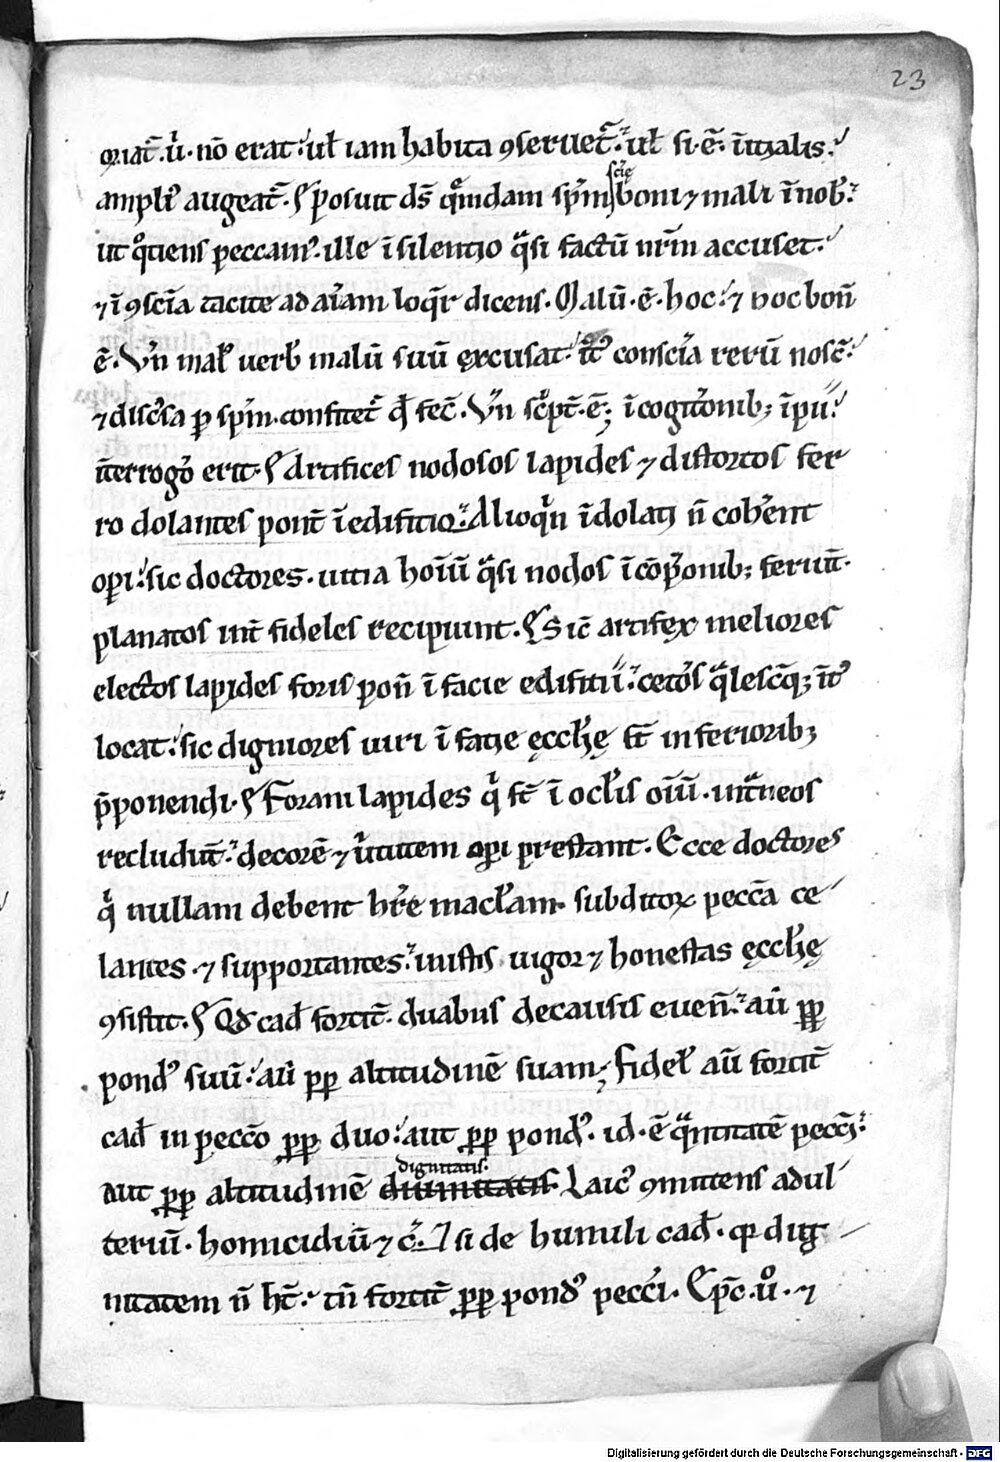 23
q̄iat̄. u̇. nō erat: ul̄ iam habita ꝯseruet̄: ul̄ si. ē. īitialis:
ampliꝰ augeat̄. ꝑosuit ds̄ qͦndam spm̄ sciē boni ⁊ mali ī nob:
ut qͦtiens peccamꝰ. ille ī silentio qͣsi factū nr̄m accuset.
⁊ ī ꝯscīa tacite ad aīam loqͥr dicens. Malū. ē. hoc: ⁊ hoc bonū
ē. Vn̄ malꝰ uerbꝰ malū suū ęxcusat: tͣ consciā rerū noscē:
⁊ discīsa ꝑ spm̄. confitet̄ qđ fec̄. Vn̄ sc̄pt̄. ē; ī cogitōnib; īpii
īterrogō erit. Artifices nodosos lapides ⁊ distortos fer
ro dolantes ponn̄t ī edificio: Alioqͥn īdolati n̄ cohērent
opi: sic doctores. uitia hoīū qͣsi nodos ī corꝑonib; feriūt.
planatos int̄ fideles recipiunt. Sic̄ artifęx meliores
electos lapides foris pon̄ ī facie edifitii: cet̄os qͣlescūq; īt̄
locat: sic digniores uiri ī fatie ęcclīę st̄ inferiorib;
p̄ponendi. Foram lapides qͥ st̄ ī oclīs oīū. intͣneos
recludūt: decorē ⁊ utitem opi prestant. Ecce doctores
qͥ nullam debent hr̄e maclām. subditoꝝ peccā ce
lantes. ⁊ supportantes: in istis uigor ⁊ honestas ęcclīę
ꝯsistit. Qđ cađ fortit̄. duabus decausis euen̄: aūt ꝓꝑ
pondꝰ suū: aūt ꝓꝑ altitudinē suam; fidel̄ aūt fortit̄
cađ in peccō ꝓꝑ duo: aut ꝓꝑ pondꝰ. id. ē qͣntitatē pecci:
aut ꝓꝑ altitudinē diuinitatis dignitatis. Laicꝰ ꝯmittens adul
teriū. homicidiū ⁊ c̄. si de humili cađ. qꝛ dig
nitatem n̄ ht̄: tn̄ fortit̄ ꝓꝑ pondꝰ pecci. Ep̄c. uͦ. ⁊
Digitalisierung gefördert durch die Deutsche Forschungsgemeinschaft - DFG